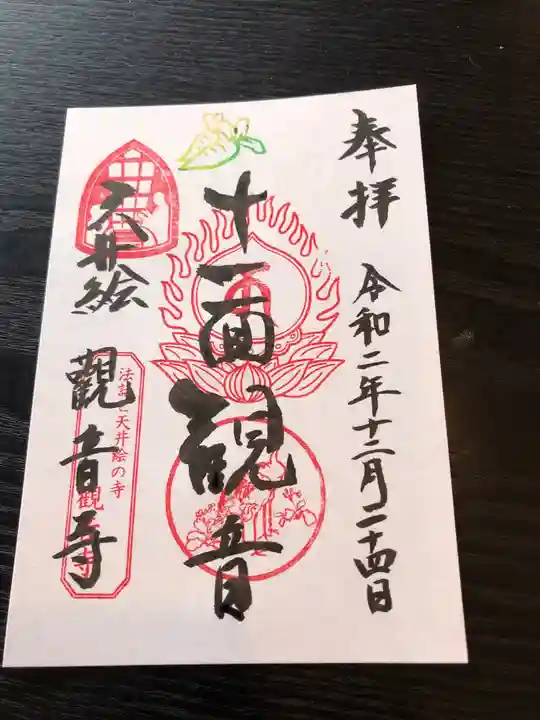 奉拝
令和二年十二月二十四日
十一面観音
天井絵
觀音寺
法話と天井絵の寺
観音寺